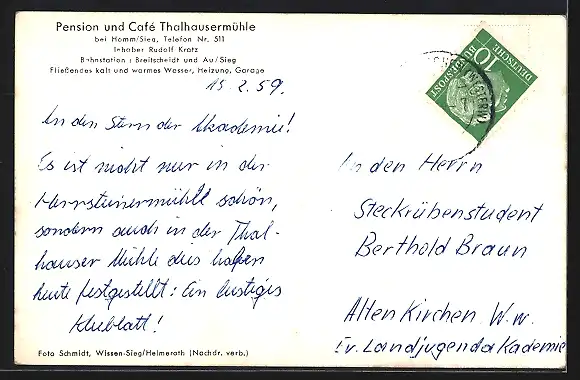 Pension und Café Thalhausermühle
bei Hamm/Sieg, Telefon Nr. 511
Inhaber Rudolf Kratz
Bahnstation: Breitscheidt und Au/Sieg
Fließendes kalt und warmes Wasser, Heizung, Garage
15.2.59.
An den Stern der Akademie!
Es ist nicht nur in der
schön,
sondern auch in der Thal-
hauser Mühle dies haben
heute festgestellt: Ein lustiges
Kleeblatt!
Foto Schmidt, Wissen-Sieg/Helmeroth (Nachdr. verb.)
10
DEUTSCHE
BUNDESPOST
An den Herrn
Steckrübenstudent
Berthold Braun
Alten Kirchen W.W.
Ev. Landjugendakademie